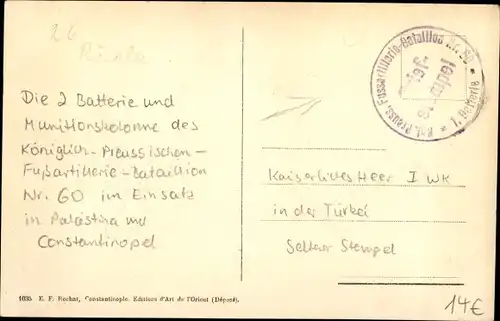 26
Die 2 Batterie und
Munitionskolonne des
Königlich-Preussischen-
Fußartillerie-Bataillion
Nr. 60 im Einsatz
in Palästina und
Constantinopel
Kgl. Preuss. Fussartillerie-Bataillon Nr. 60
1. Batterie
Kaiserliches Heer I WK
in der Türkei
Seltener Stempel
1035 E. F. Rochat, Constantinople. Editeurs d'Art de l'Orient (Déposé).
14€